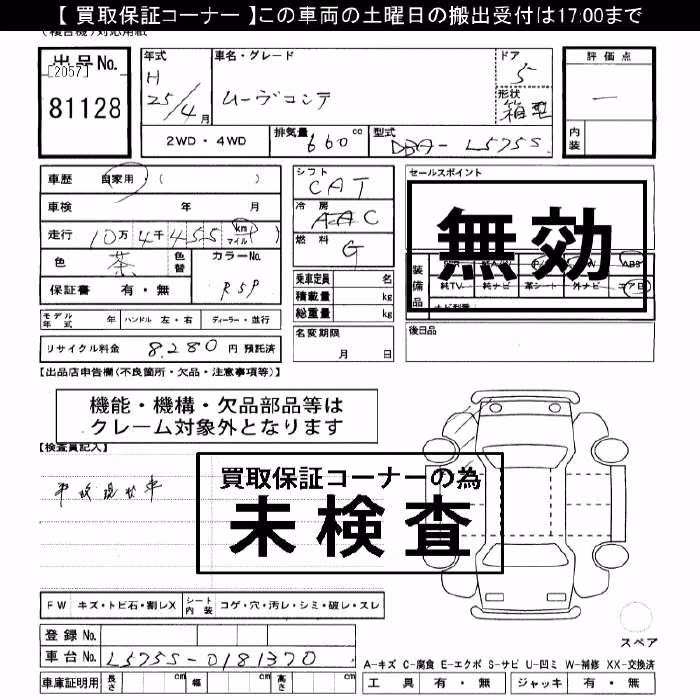 【 買取保証コーナー 】この車両の土曜日の搬出受付は17:00まで
出品No.
[2057]
81128
年式
H
25/4月
車名・グレード
ムーヴコンテ
ドア
5
形状
箱型
評価点
—
内装
2WD・4WD
排気量 660 cc
型式 DBA-L575S
車歴 自家用 ( )
車検 年 月
走行 10万4千455 km マイル ( )
色 茶 色替
カラーNo. R59
保証書 有・無
シフト CAT
冷房 AAC
燃料 G
乗車定員 名
積載量 kg
総重量 kg
セールスポイント
無効
装備品
ABS
純TV 純ナビ 革シート 外ナビ エアB
モデル年式 年 ハンドル 左・右 ディーラー・並行
名変期限 月 日
後日品
リサイクル料金 8,280 円 預託済
【出品店申告欄(不良箇所・欠品・注意事項等)】
機能・機構・欠品部品等は
クレーム対象外となります
【検査員記入】
事故現状車
買取保証コーナーの為
未検査
FW キズ・トビ石・割レX シート内装 コゲ・穴・汚レ・シミ・破レ・スレ
スペア
登録No.
車台No. L575S-0181370
A-キズ C-腐食 E-エクボ S-サビ U-凹ミ W-補修 XX-交換済
車庫証明用 長さ cm 幅 cm 高さ cm
工具 有・無 ジャッキ 有・無